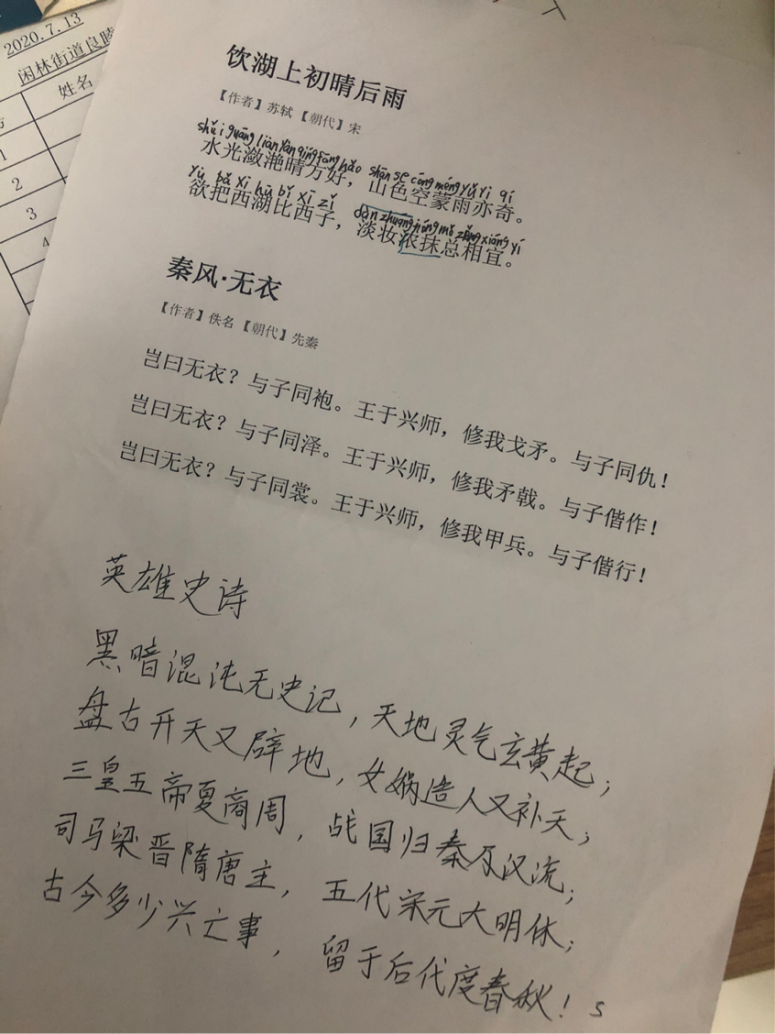 2020.7.13
闲林街道良睦
姓名
1
2
3
4
饮湖上初晴后雨
【作者】苏轼【朝代】宋
shuǐ guāng liàn yàn qíng fāng hǎo shān sè cōng méng yǔ yì qí
水光潋滟晴方好，山色空蒙雨亦奇。
yù bǎ xī hú bǐ xī zǐ dàn zhuāng
欲把西湖比西子，淡妆浓抹总相宜。
秦风·无衣
【作者】佚名【朝代】先秦
岂曰无衣？与子同袍。王于兴师，修我戈矛。与子同仇！
岂曰无衣？与子同泽。王于兴师，修我矛戟。与子偕作！
岂曰无衣？与子同裳。王于兴师，修我甲兵。与子偕行！
英雄史诗
黑暗混沌无史记，天地灵气玄黄起；
盘古开天又辟地，女娲造人又补天；
三皇五帝夏商周，战国归秦及汉流；
司马梁晋隋唐主，五代宋元大明休；
古今多少兴亡事，留于后代度春秋！s